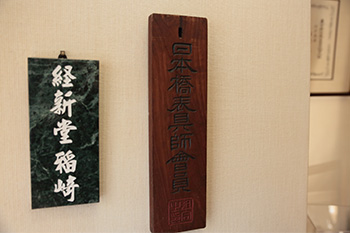 経新堂稲崎
日本橋表具師會員